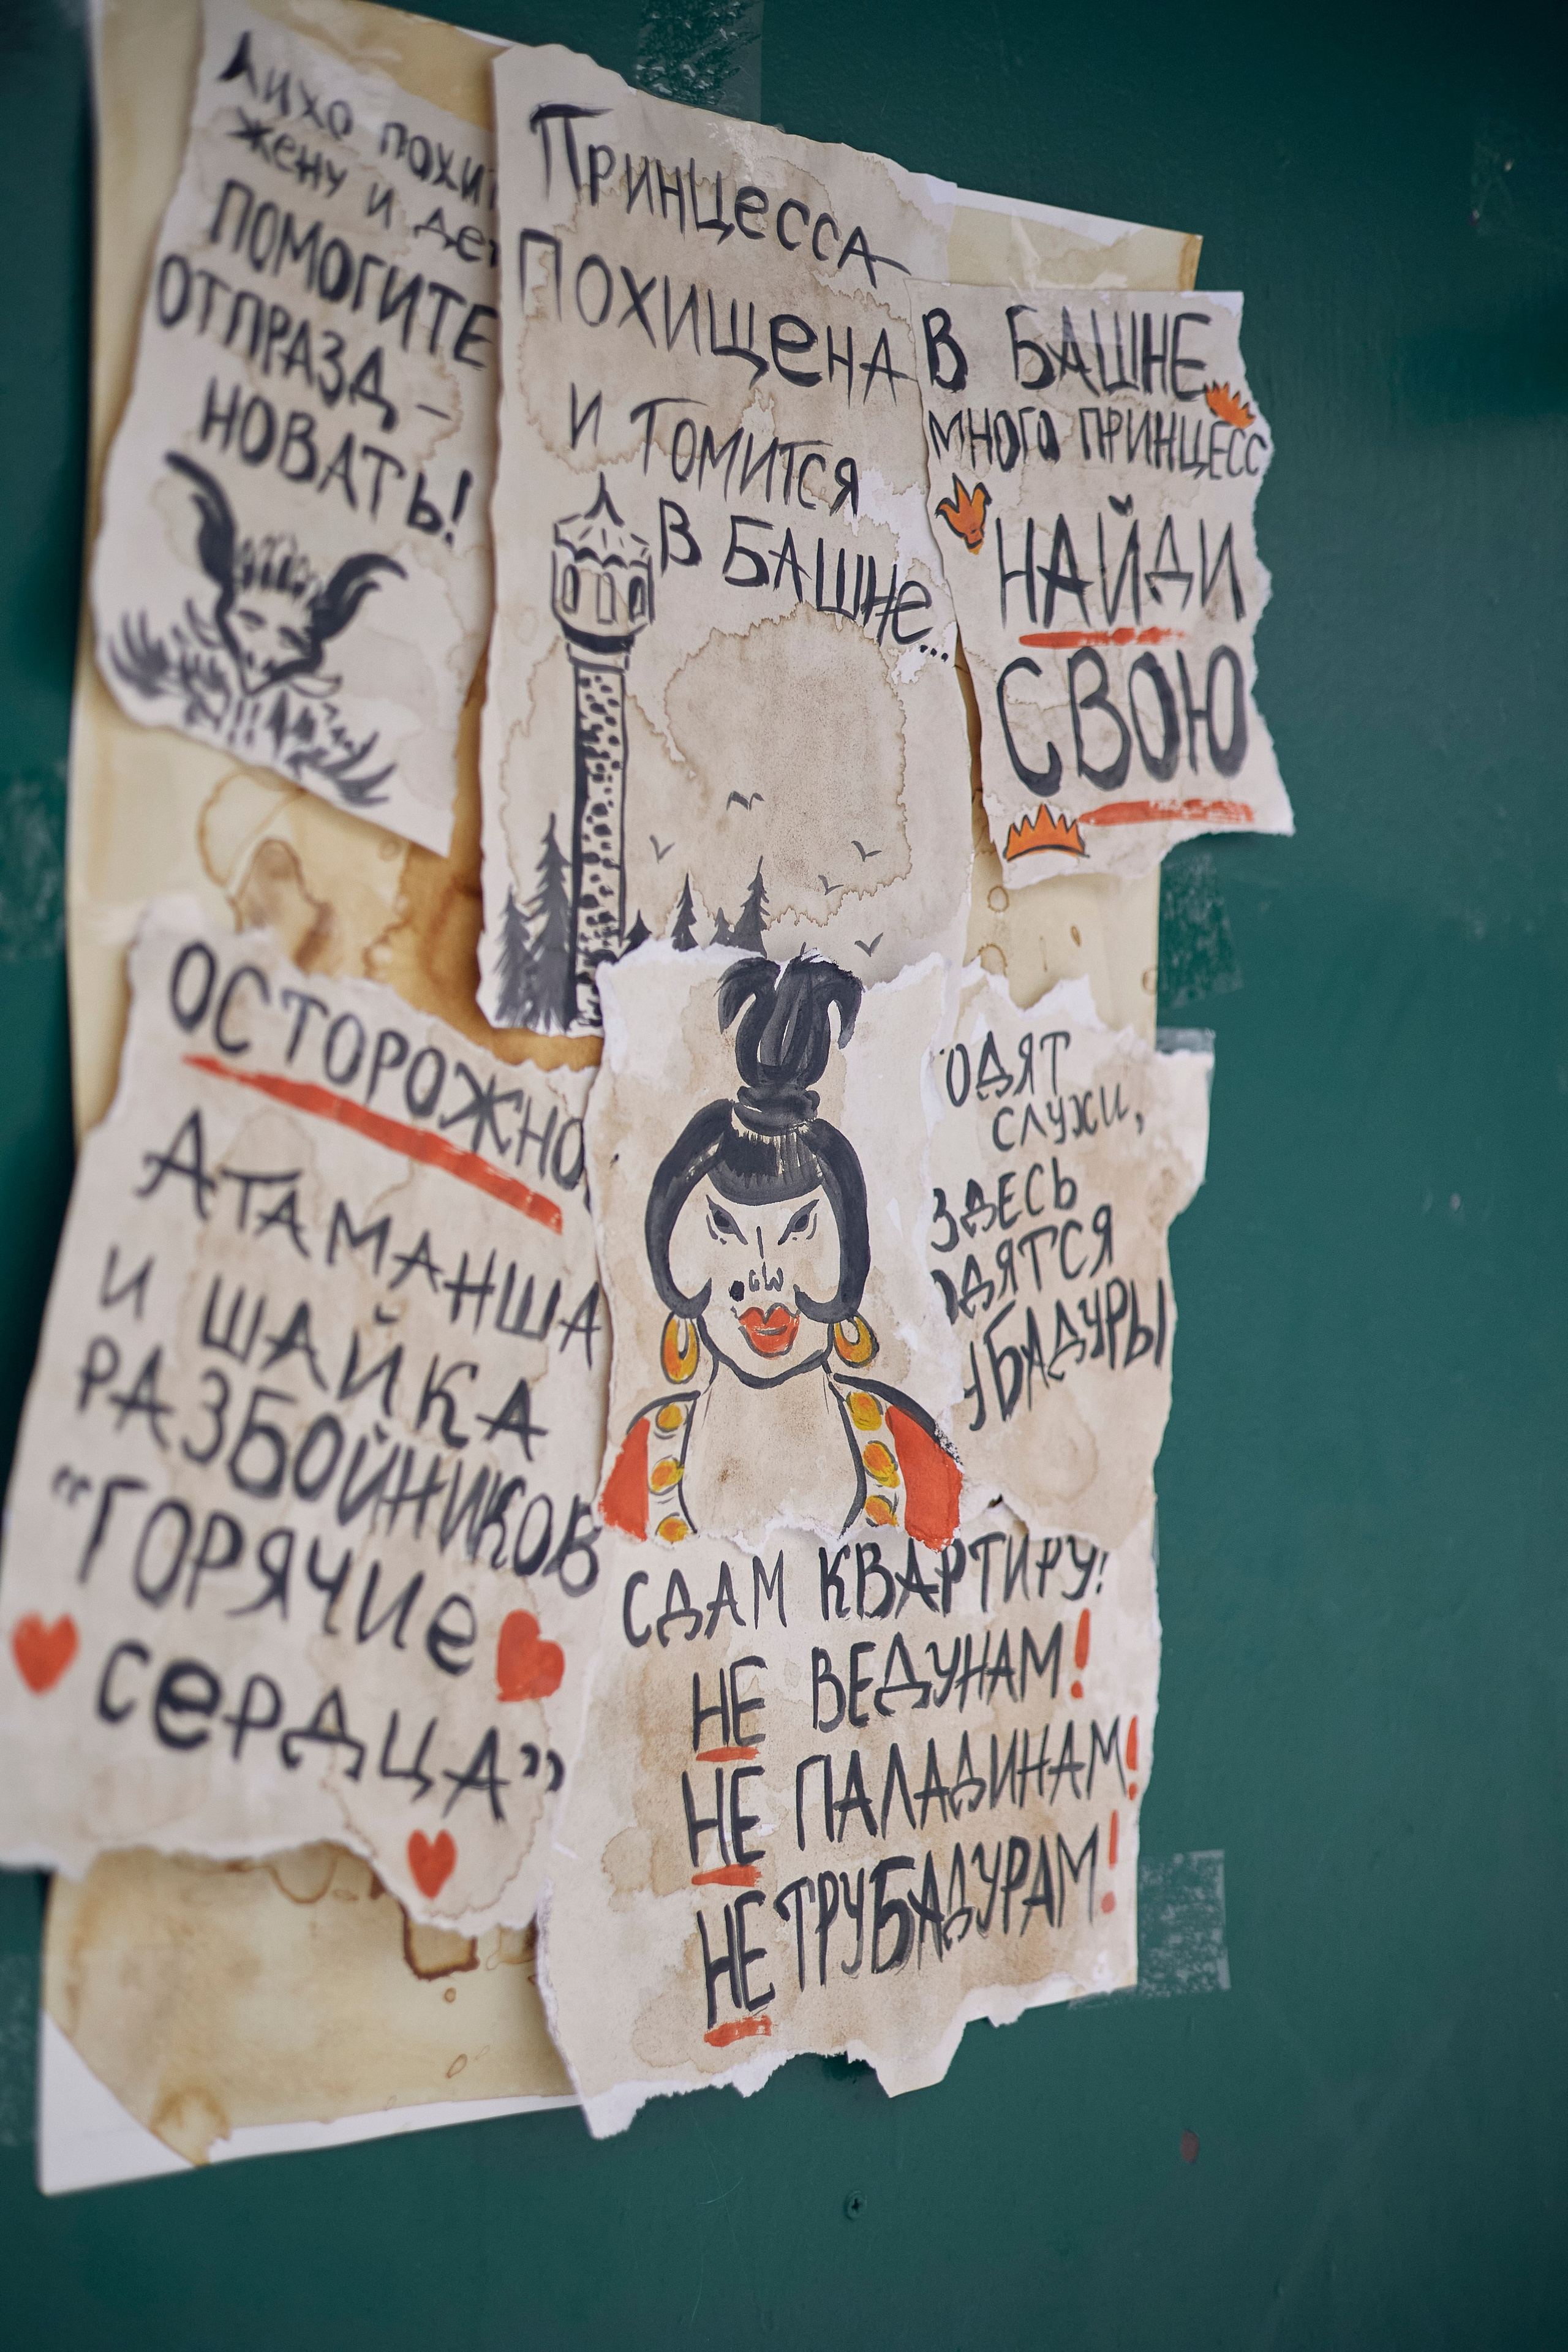 Лихо похи
жену и де
ПОМОГИТЕ
ОТПРАЗД-
НОВАТЬ!
Принцесса
Похищена
и томится
в башне...
В БАШНЕ
МНОГО ПРИНЦЕСС
НАЙДИ
СВОЮ
ОСТОРОЖНО
АТАМАНША
И ШАЙКА
РАЗБОЙНИКОВ
"ГОРЯЧИЕ
сердца"
ОДЯТ
СЛУХИ,
ЗДЕСЬ
ОДЯТСЯ
УБАДУРЫ
СДАМ КВАРТИРУ!
НЕ ВЕДУНАМ!
НЕ ПАЛАДИНАМ!
НЕ ТРУБАДУРАМ!